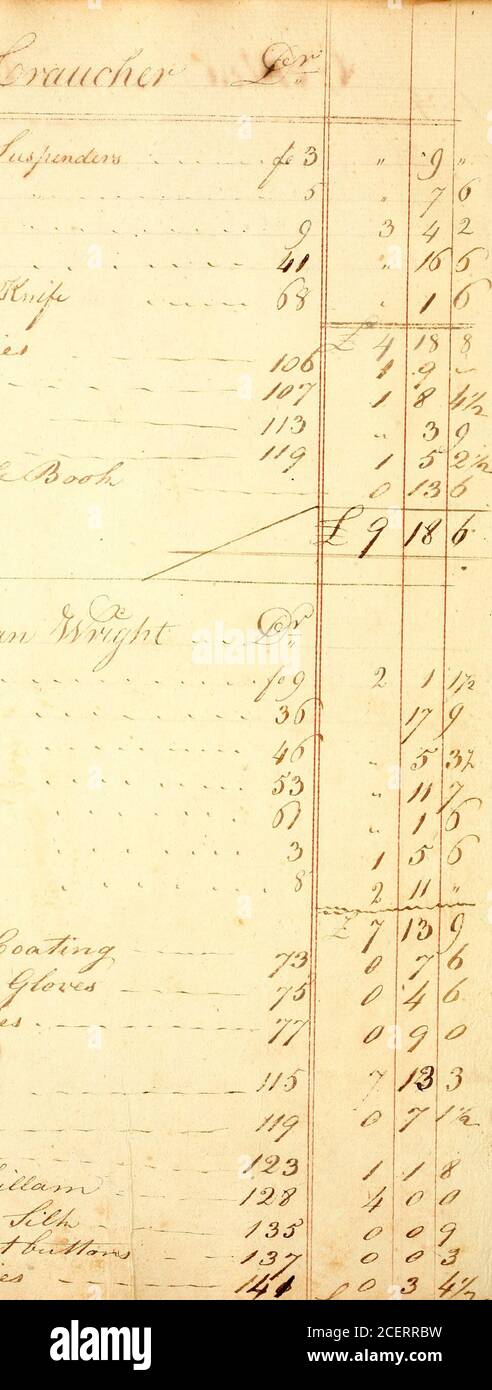 Craucher Dr
Suspenders fo 3 " 9 "
5 " 7 6
9 3 4 2
41 " 16 6
Knife 68 " 1 6
£ 4 18 8
106 1 9 "
107 1 8 4½
113 " 3 9
119 1 5 2½
Book 0 13 6
£ 9 18 6
Wright Dr
fo 9 2 1 1½
36 17 9
46 " 5 3½
53 " 11 7
61 " 1 6
3 1 5 6
8 2 11 "
£ 7 13 9
Coating 73 0 7 6
Gloves 75 0 4 6
77 0 9 0
115 7 13 3
119 0 7 1½
123 1 1 8
128 4 0 0
Silk 135 0 0 9
buttons 137 0 0 3
141 0 3 4½
alamy
Image ID: 2CERRBW
www.alamy.com